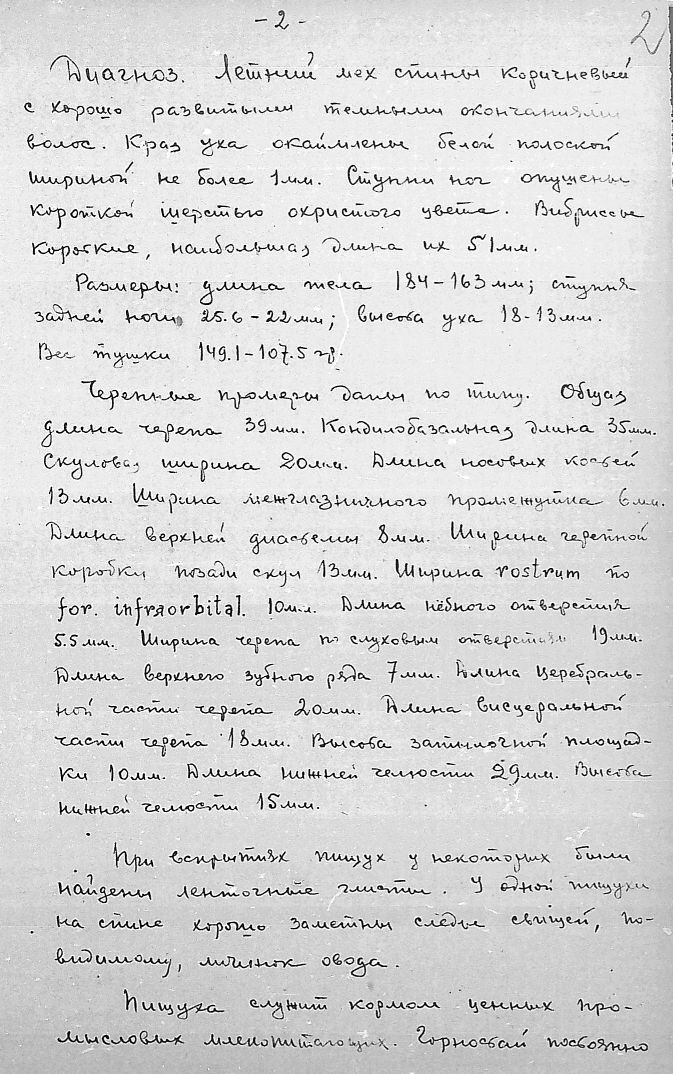 - 2 -
2
Диагноз. Летний мех спины коричневый
с хорошо развитыми темными окончаниями
волос. Края уха окаймлены белой полоской
шириной не более 1мм. Ступни ног опушены
короткой шерстью охристого цвета. Вибриссы
короткие, наибольшая длина их 51мм.
Размеры: длина тела 184-163мм; ступня
задней ноги 25.6-22мм; высота уха 18-13мм.
Вес тушки 149.1-107.5 гр.
Черепные промеры даны по типу. Общая
длина черепа 39мм. Кондилобазальная длина 35мм.
Скуловая ширина 20мм. Длина носовых костей
13мм. Ширина межглазничного промежутка 6мм.
Длина верхней диастемы 8мм. Ширина черепной
коробки позади скул 13мм. Ширина rostrum по
for. infraorbital. 10мм. Длина нёбного отверстия
5.5мм. Ширина черепа по слуховым отверстиям 19мм.
Длина верхнего зубного ряда 7мм. Длина церебраль-
ной части черепа 20мм. Длина висцеральной
части черепа 18мм. Высота затылочной площад-
ки 10мм. Длина нижней челюсти 29мм. Высота
нижней челюсти 15мм.
При вскрытиях пищух у некоторых были
найдены ленточные глисты. У одной пищухи
на спине хорошо заметны следы свищей, по-
видимому, личинок овода.
Пищуха служит кормом ценных про-
мысловых млекопитающих. Горностай постоянно